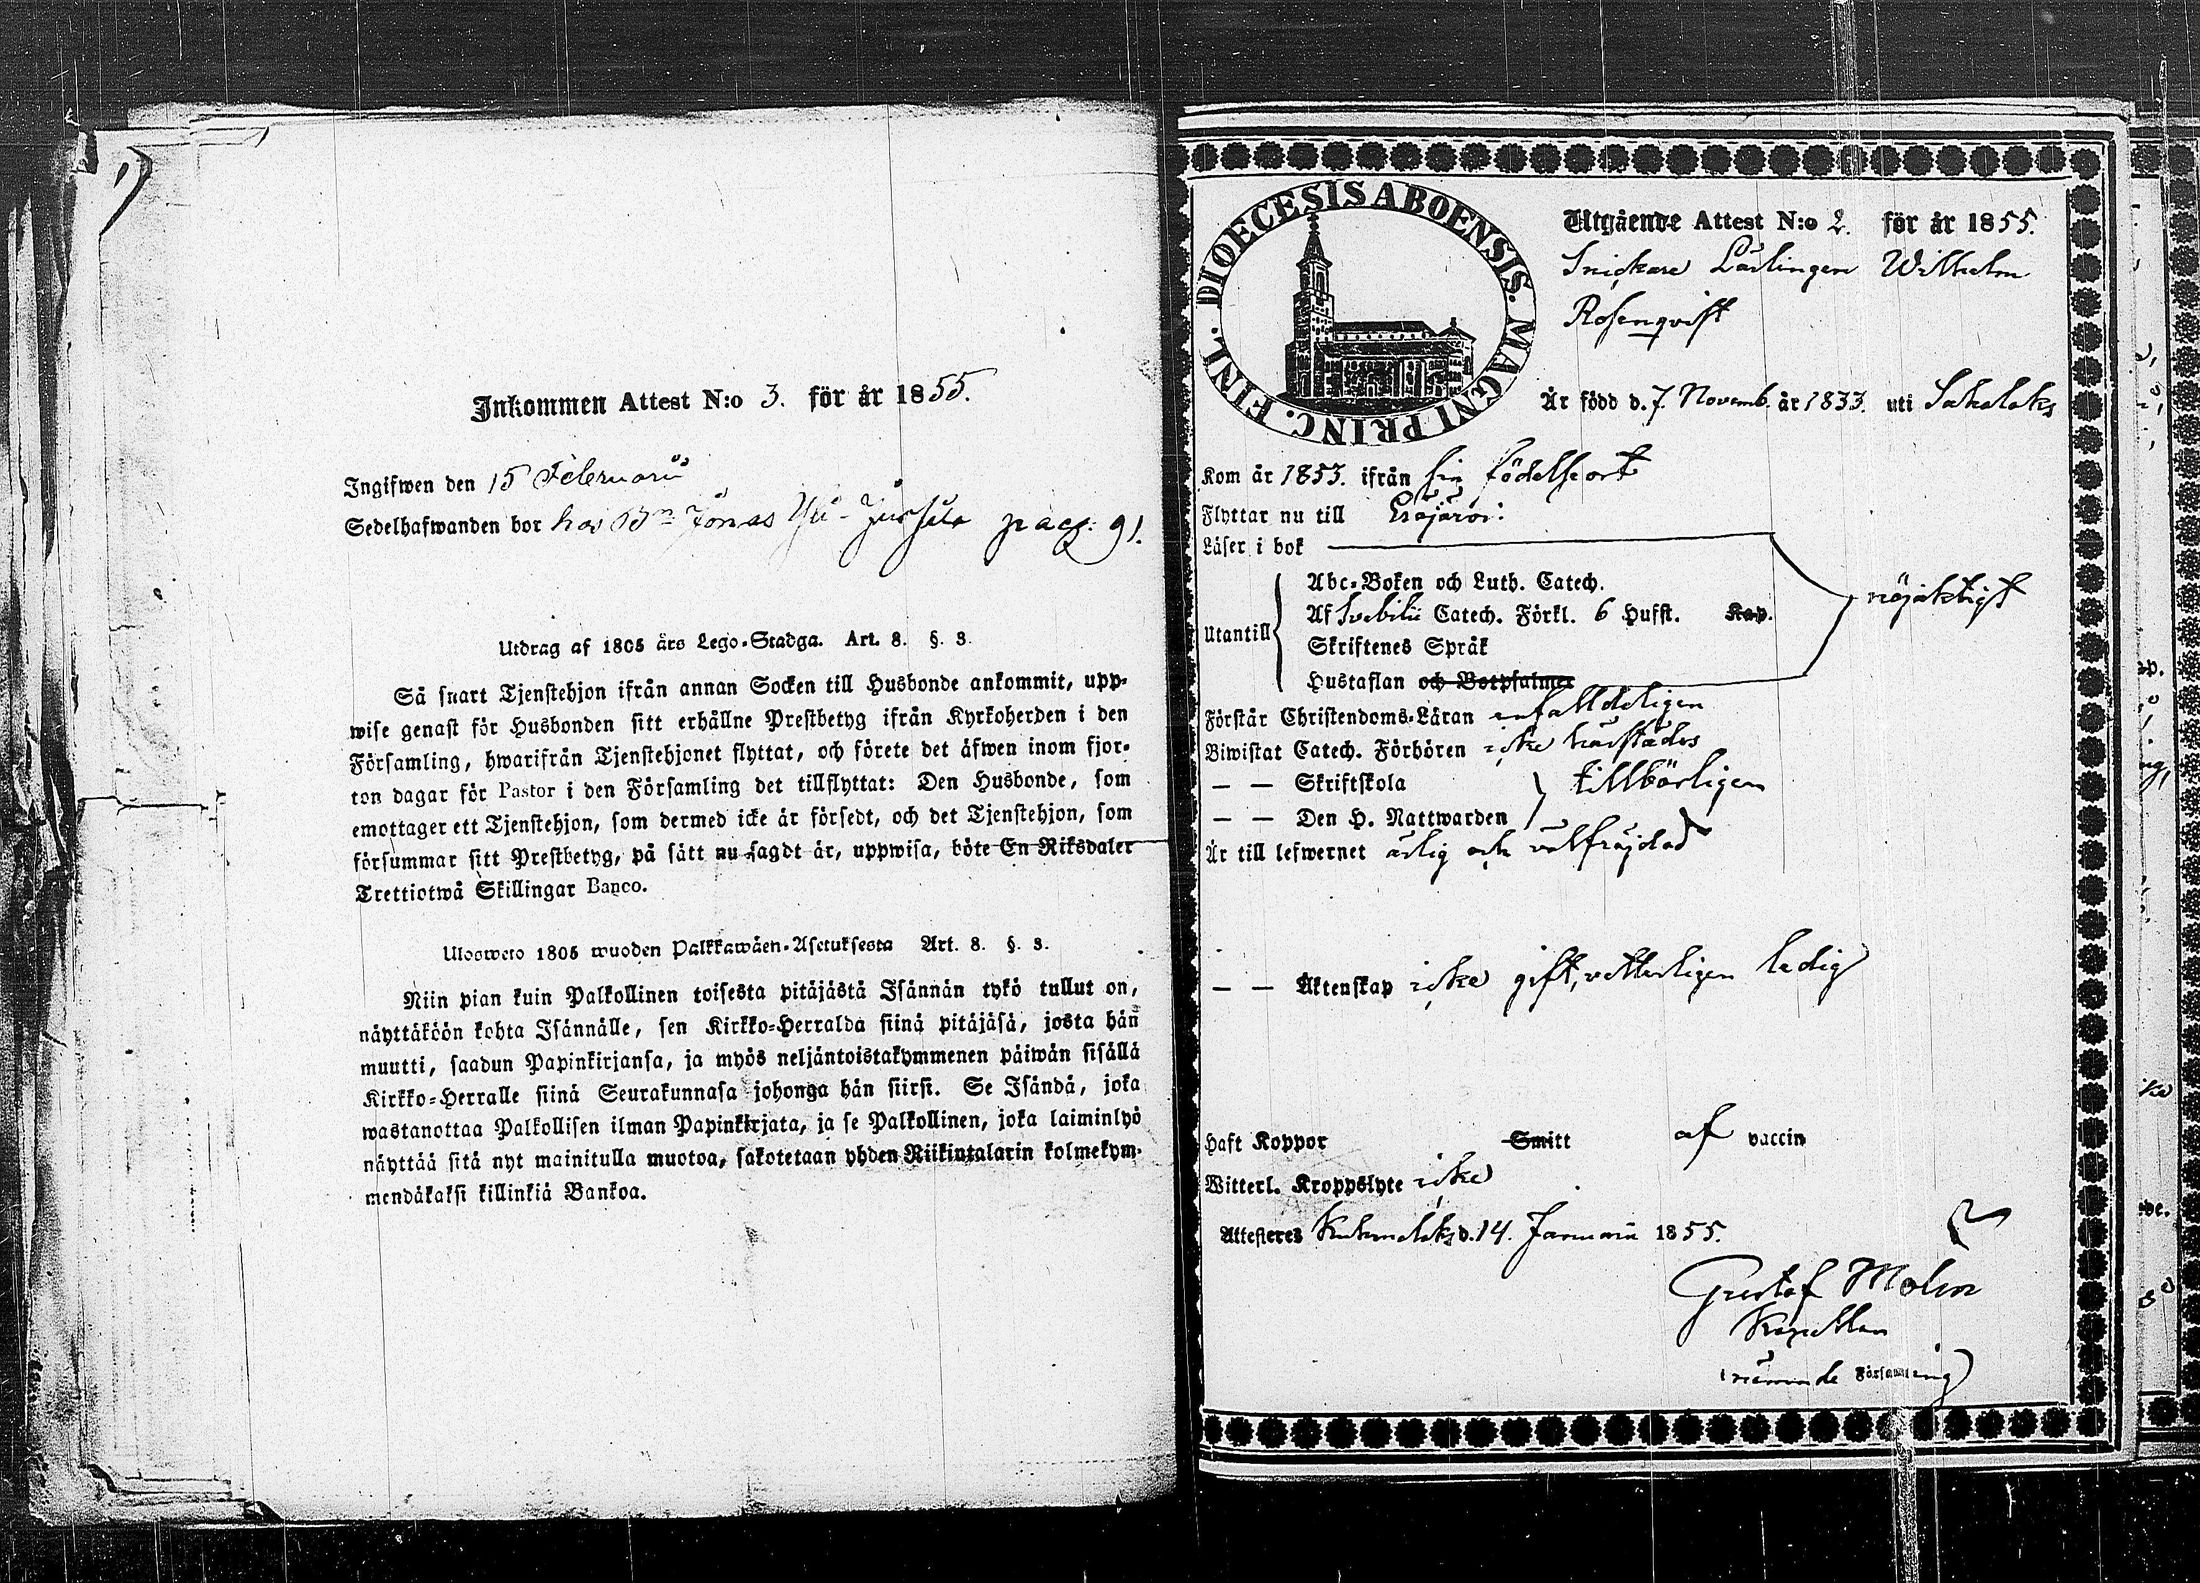 Inkommen Attest N:o 3. för år 1855.
Ingifwen den 15 Februarii
Sedelhafwanden bor hos Bn Jonas Yli-Jussila pag: 91.
Utdrag af 1805 års Lego-Stadga. Art. 8. §. 3.
Så snart Tjenstehjon ifrån annan Socken till Husbonde ankommit, upp-
wise genast för Husbonden sitt erhållne Prestbetyg ifrån Kyrkoherden i den
Församling, hwarifrån Tjenstehjonet flyttat, och förete det äfwen inom fjor-
ton dagar för Pastor i den Församling det tillflyttat: Den Husbonde, som
emottager ett Tjenstehjon, som dermed icke är försedt, och det Tjenstehjon, som
försummar sitt Prestbetyg, på sätt nu sagdt är, uppwisa, böte En Riksdaler
Trettiotwå Skillingar Banco.
Ulosweto 1805 wuoden Palkkawäen-Asetuksesta Art. 8. §. 3.
Niin pian kuin Palkollinen toisesta pitäjästä Isännän tykö tullut on,
näyttäköön kohta Isännälle, sen Kirkko-Herralda siinä pitäjäsä, josta hän
muutti, saadun Papinkirjansa, ja myös neljäntoistakymmenen päiwän sisällä
Kirkko-Herralle siinä Seurakunnasa johonga hän siirsi. Se Isändä, joka
wastanottaa Palkollisen ilman Papinkirjata, ja se Palkollinen, joka laiminlyö
näyttää sitä nyt mainitulla muotoa, sakotetaan yhden Riikintalarin kolmekym-
mendäkaksi killinkiä Bankoa.
DIOECESIS ABOENSIS. MAGNI PRINC. FINL.
Utgående Attest N:o 2. för år 1855.
Snickare Lärlingen Wilhelm
Rosenqvist
Är född d. 7. Novemb. år 1833. uti Sahalaks
Kom år 1853. ifrån sin födelseort
Flyttar nu till Eräjärvi:
Läser i bok
Utantill
Abc-Boken och Luth. Catech.
Af Svebilii Catech. Förkl. 6 Hufst. Kap.
Skriftenes Språk
Hustaflan och Botpsalmer
nöjaktigt
Förstår Christendoms-Läran enfalldeligen
Biwistat Catech. Förhören icke härstädes
— — Skriftskola
— — Den H. Nattwarden
tillbörligen
Är till lefwernet ärlig och välfräjdad
— — Äktenskap icke gift, vetterligen ledig
Haft Koppor Smitt af vaccin
Witterl. Kroppslyte icke
Attesteres Kuhmalaks d. 14. Januarii 1855.
Gustaf Molin
Kapellan
i nämnde Församling